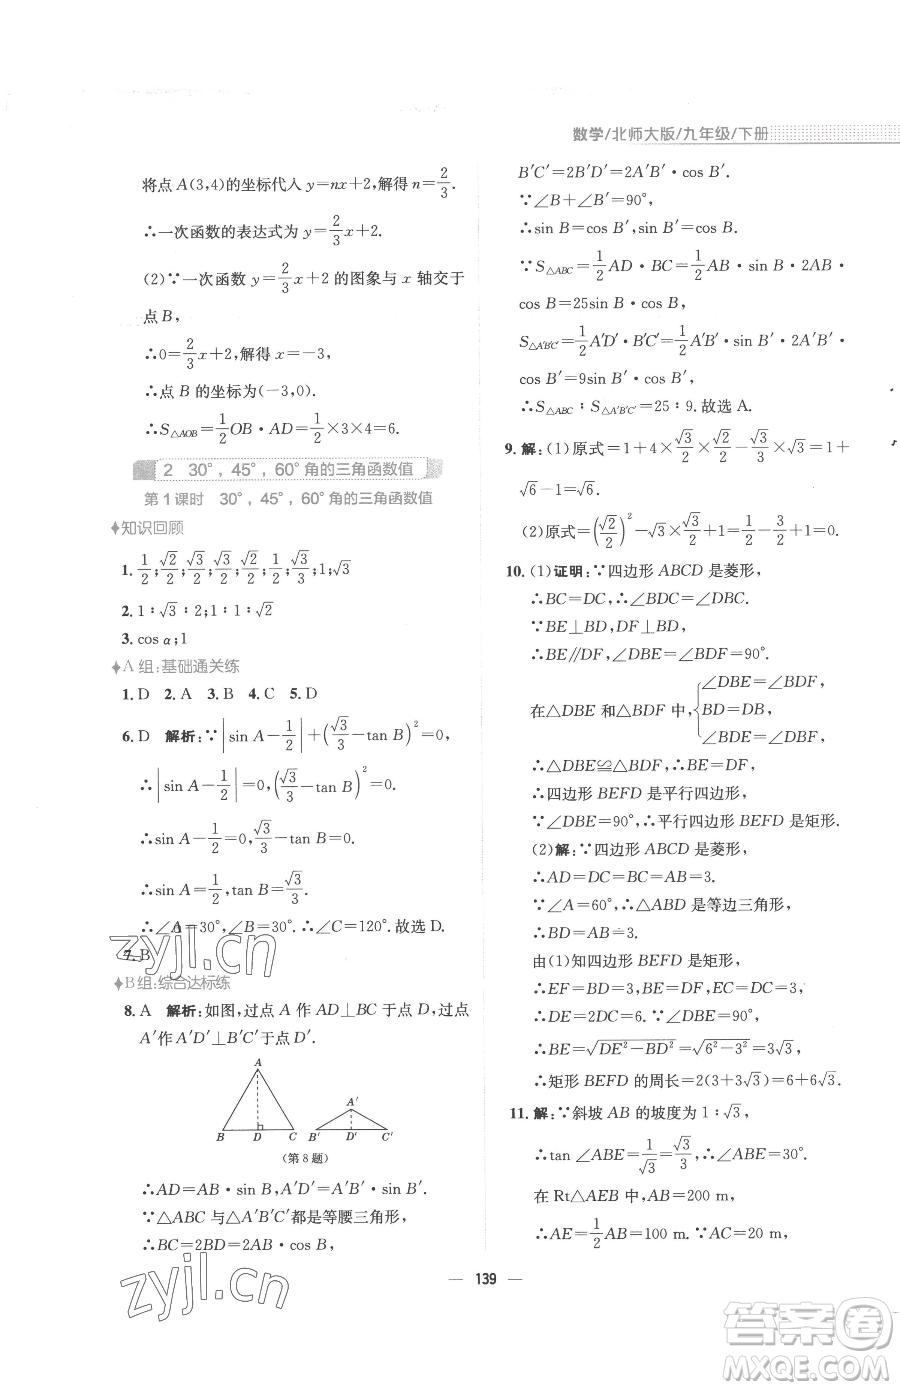 数学/北师大版/九年级/下册
将点 A(3,4)的坐标代入 y=nx+2,解得 n=2/3.
∴一次函数的表达式为 y=2/3x+2.
(2)∵一次函数 y=2/3x+2 的图象与 x 轴交于
点 B,
∴0=2/3x+2,解得 x=-3,
∴点 B 的坐标为(-3,0).
∴S△AOB=1/2OB·AD=1/2×3×4=6.
2 30°，45°，60°角的三角函数值
第1课时 30°，45°，60°角的三角函数值
知识回顾
1. 1/2;√2/2;√3/2;√3/2;√2/2;1/2;√3/3;1;√3
2. 1∶√3∶2;1∶1∶√2
3. cos α;1
A组:基础通关练
1. D 2. A 3. B 4. C 5. D
6. D 解析:∵|sin A-1/2|+(√3/3-tan B)²=0,
∴|sin A-1/2|=0,(√3/3-tan B)²=0.
∴sin A-1/2=0,√3/3-tan B=0.
∴sin A=1/2,tan B=√3/3.
∴∠A=30°,∠B=30°.∴∠C=120°.故选 D.
7. B
B组:综合达标练
8. A 解析:如图,过点 A 作 AD⊥BC 于点 D,过点
A′作 A′D′⊥B′C′于点 D′.
A
B D C
A′
B′ D′ C′
(第 8 题)
∴AD=AB·sin B,A′D′=A′B′·sin B′.
∵△ABC 与△A′B′C′都是等腰三角形,
∴BC=2BD=2AB·cos B,
B′C′=2B′D′=2A′B′·cos B′.
∵∠B+∠B′=90°,
∴sin B=cos B′,sin B′=cos B.
∵S△ABC=1/2AD·BC=1/2AB·sin B·2AB·
cos B=25sin B·cos B,
S△A′B′C′=1/2A′D′·B′C′=1/2A′B′·sin B′·2A′B′·
cos B′=9sin B′·cos B′,
∴S△ABC∶S△A′B′C′=25∶9.故选 A.
9. 解:(1)原式=1+4×√3/2×√2/2-√3/3×√3=1+
√6-1=√6.
(2)原式=(√2/2)²-√3×√3/2+1=1/2-3/2+1=0.
10. (1)证明:∵四边形 ABCD 是菱形,
∴BC=DC,∴∠DBC=∠BDC.
∵BE⊥BD,DF⊥BD,
∴BE∥DF,∠DBE=∠BDF=90°.
在△DBE 和△BDF 中,{∠DBE=∠BDF,
BD=DB,
∠BDE=∠DBF,
∴△DBE≌△BDF,∴BE=DF.
∴四边形 BEFD 是平行四边形.
∵∠DBE=90°,∴平行四边形 BEFD 是矩形.
(2)解:∵四边形 ABCD 是菱形,
∴AD=DC=BC=AB=3.
∵∠A=60°,∴△ABD 是等边三角形,
∴BD=AB=3.
由(1)知四边形 BEFD 是矩形,
∴EF=BD=3,∠DBE=90°,EC=DC=3,
∴DE=2DC=6.∵∠DBE=90°,
∴BE=√DE²-BD²=√6²-3²=3√3.
∴矩形 BEFD 的周长=2(3+3√3)=6+6√3.
11. 解:∵斜坡 AB 的坡度为 1∶√3,
∴tan ∠ABE=1/√3=√3/3,∴∠ABE=30°.
在 Rt△AEB 中,∵AB=200 m,
∴AE=1/2AB=100 m.∵AC=20 m,
— 139 —
zyjl.cn
zyjl.cn
答案圈
MXQE.COM